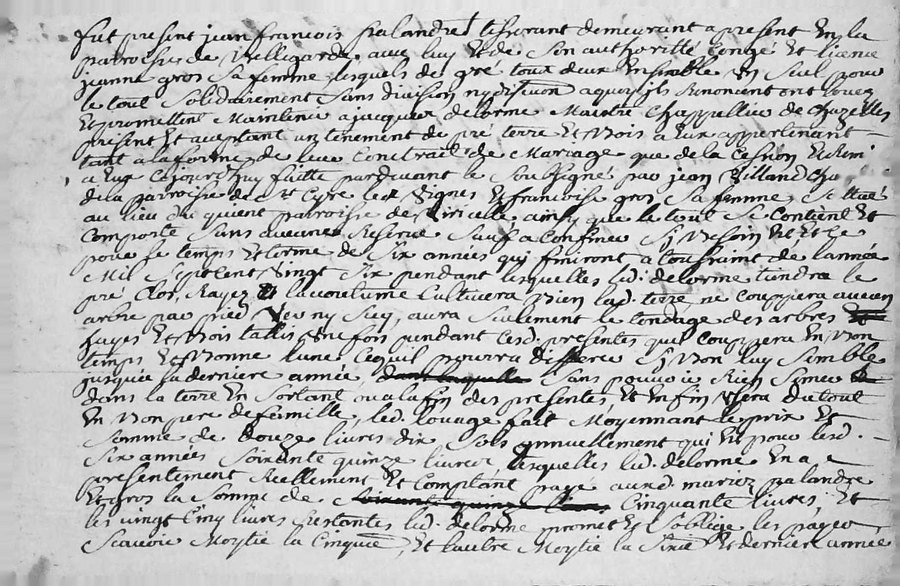 fut present jean francois palandre tisserant demeurant a present En la
parroisse de Bellegarde avec luy Et de Son authoritté Congé Et licence
jeanne gros Sa femme, lesquels de gré tous deux Ensemble Un Seul pour
le tout Solidairement Sans division ny dision aquoy jls Renoncent ont louez
Et promettent Maintenir a jacques delorme Maistre Chappellier de Chazelles
present Et aceptant un tenement de pré terre Et Bois a Eux appartenant
tant a la forme de leur Contrait de Mariage que de la Cession Et Remi
a Eux Cejourd'huy faitte pardevant le Soussigné par jean Villand
de la parroisse de St Cyre les Vignes Et francoise gros Sa femme Scitué
au lieu du parroisse de Viricelle ainsy que le tout Se Contient Et
Comporte Sans aucune Reserve Sauf a Confiner Sy Besoin Est Et Ce
pour le temps Et terme de Six années qui finiront a toussaint de l'année
Mil Sept Cent Vingt Six pendant lesquelles led. delorme tiendra le
pré Clos, Rayez a la coutume Cultivera Bien lad. terre ne Couppera aucun
arbre par pied Vev ny Secq, aura Seulement le tondage des arbres
hayes Et Bois taillis Une fois pendant Cesd. presentes que Couppera En Bon
temps Et Bonne lune Cequil pourra differer Sy Bon luy Semble
jusquea la derniere année Sans pouvoir Rien Semer
dans la terre En Sortant ou a la fin des presentes, Et Enfin Usera du tout
En Bon pere de famille, led. louage fait Moyennant le prix Et
Somme de Douze livres dix Sols annuellement qui Est pour lesd.
Six années Soixante quinze livres, lesquelles led. delorme En a
presentement Reellement Et Comptant payé ausd. mariez palandre
Et gros la Somme de Cinquante livres, Et
les vingt Cinq livres Restantes led. delorme promet Et S'oblige les payer
Scavoir Moytié la Cinquie, Et l'autre Moytié la Sixie Et derniere année